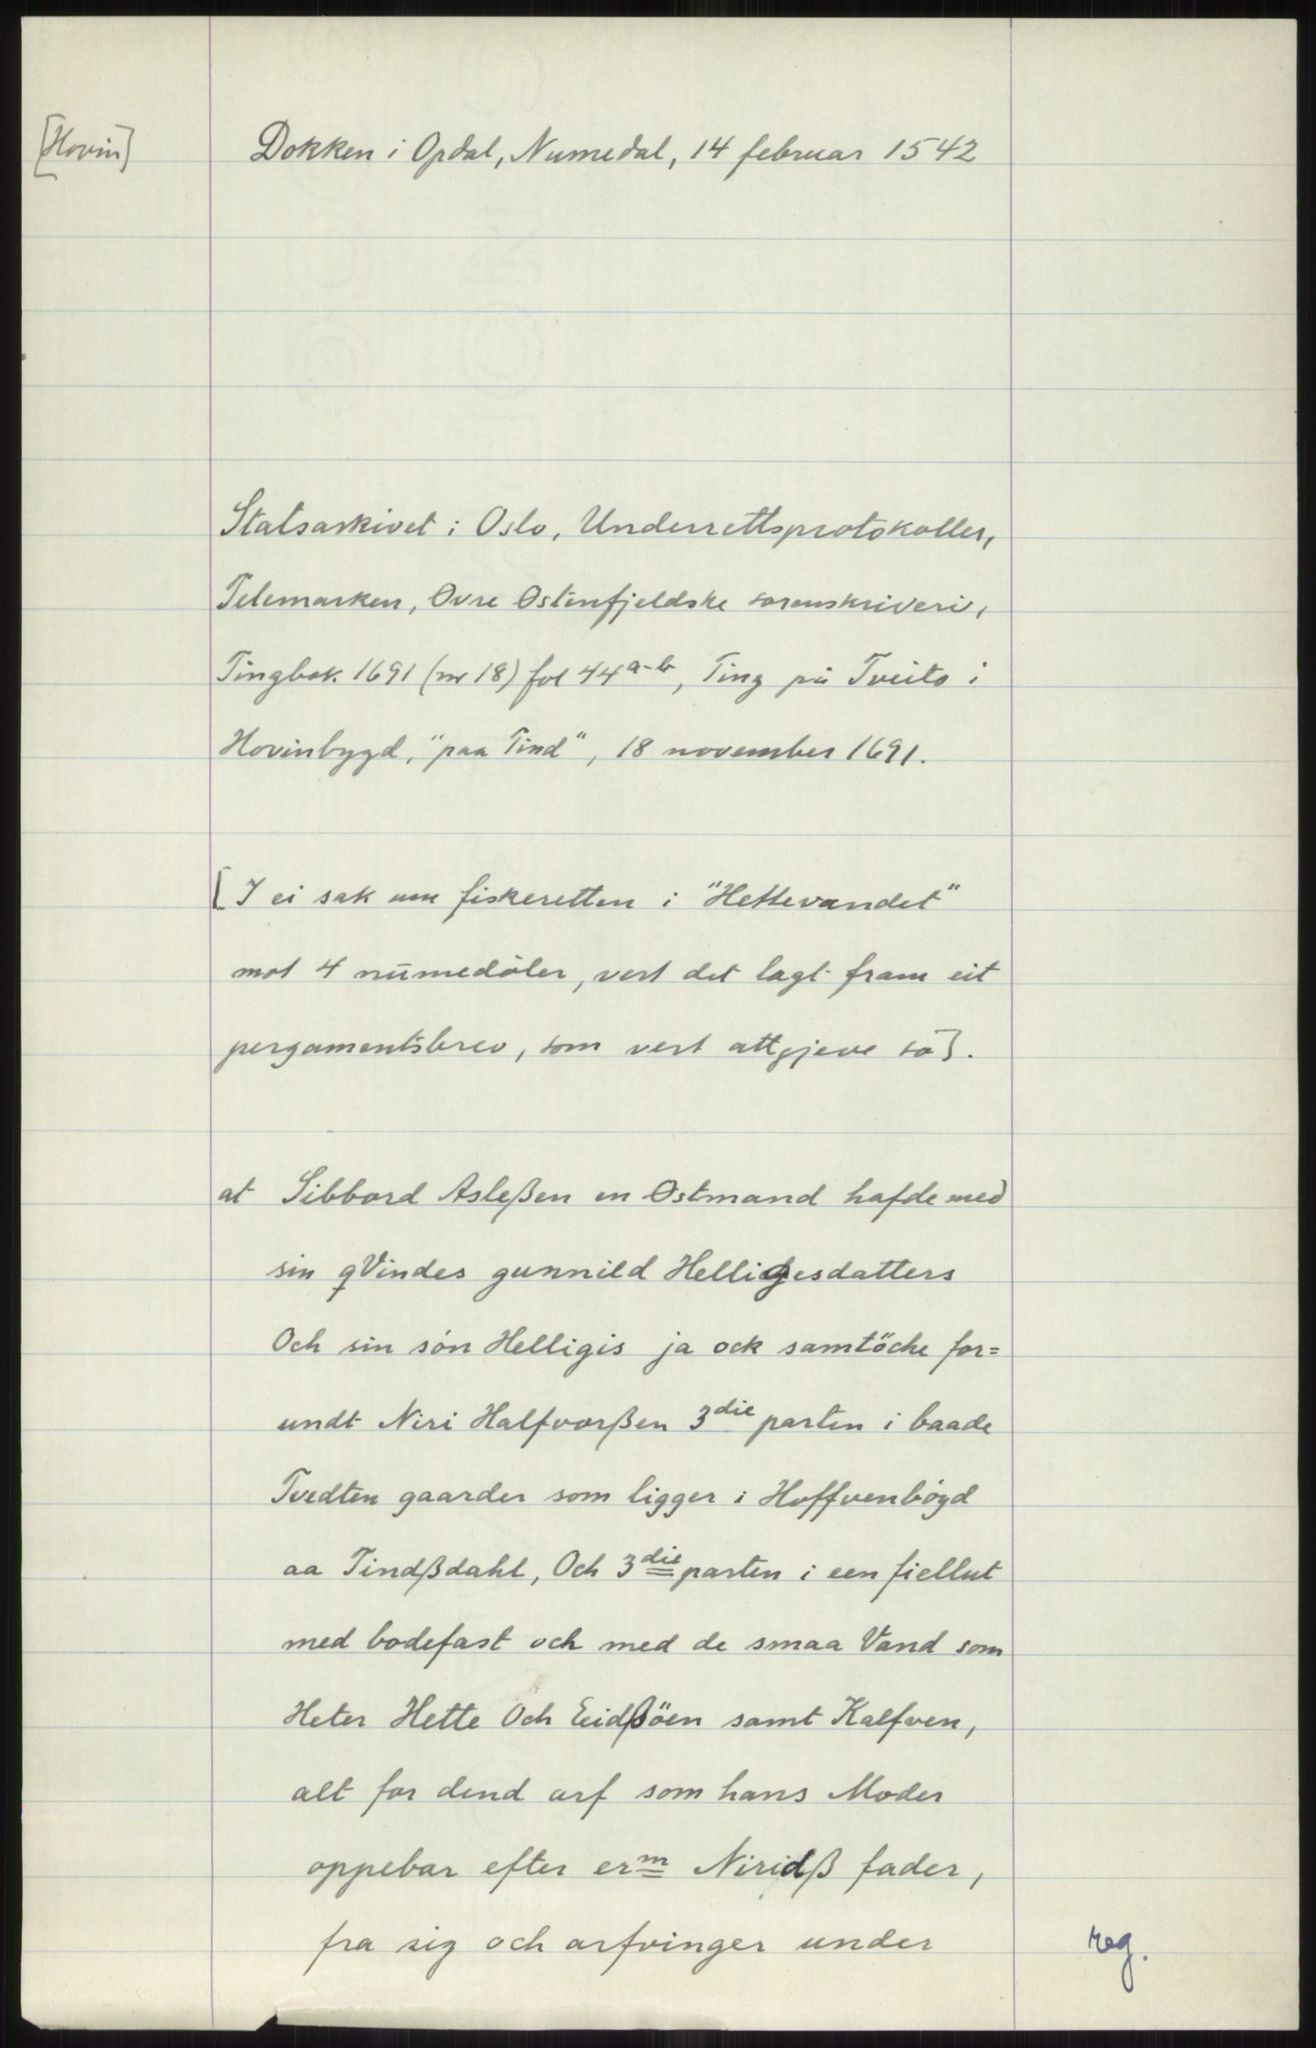 [Hovin]
Dokken i Opdal, Numedal, 14 februar 1542
Statsarkivet i Oslo, Underrettsprotokoller,
Telemarken, Øvre Østenfjeldske sorenskriveri,
Tingbok 1691 (nr 18) fol 44 a-b, Ting på Tveito i
Hovinbygd, "paa Tind", 18 november 1691.
[I ei sak um fiskeretten i "Hettevandet"
mot 4 numedøler, vert det lagt fram eit
pergamentsbrev, som vert attgjeve so].
at Sibbord Asleßen en Ostmand hafde med
sin qVindes gunnild Helligesdatters
Och sin søn Helligis ja ock samtöcke for=
undt Niri Halfvorßen 3die parten i baade
Tvedten gaarder som ligger i Hoffvenbøygd
aa Tindßdahl, Och 3die parten i een fiellut
med bodefast och med de smaa Vand som
Heter Hette Och Eeidßöen samt Kalfven,
alt for dend arf som hans Moder
oppebar efter erm Niridß fader,
fra sig och arfvinger under
reg.